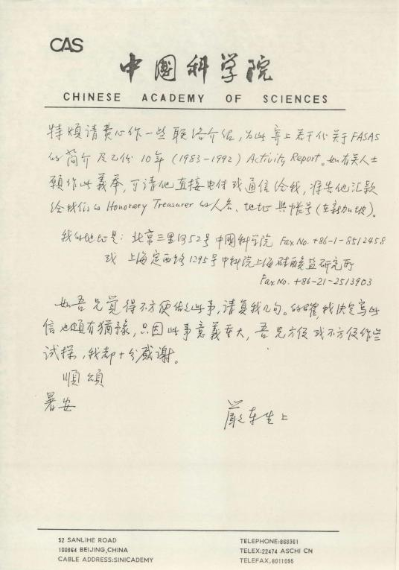 CAS
中國科学院
CHINESE ACADEMY OF SCIENCES
特煩請费心作一些联络介绍，为此寄上若干份关于FASAS
的简介及七份10年（1983-1992）Activity Report。如有关人士
願作此義舉，可请他直接电传或通信给我，
给我们的Honorary Treasurer的人名、地址與帳号（在新加坡）。
我的地址是：北京三里河52号中國科学院 Fax No. +86-1-8512458
或 上海定西路1295号中科院上海硅酸盐研究所
Fax No. +86-21-2513903
如吾兄覚得不方便做此事，請复我几句。的確我决定寫此
信也頗有猶豫，只因此事意義重大，吾兄方便或不方便作些
试探，我都十分感谢。
順頌
暑安
嚴东生上
52 SANLIHE ROAD
100864 BEIJING,CHINA
CABLE ADDRESS:SINICADEMY
TELEPHONE:868361
TELEX:22474 ASCHI CN
TELEFAX:8011095